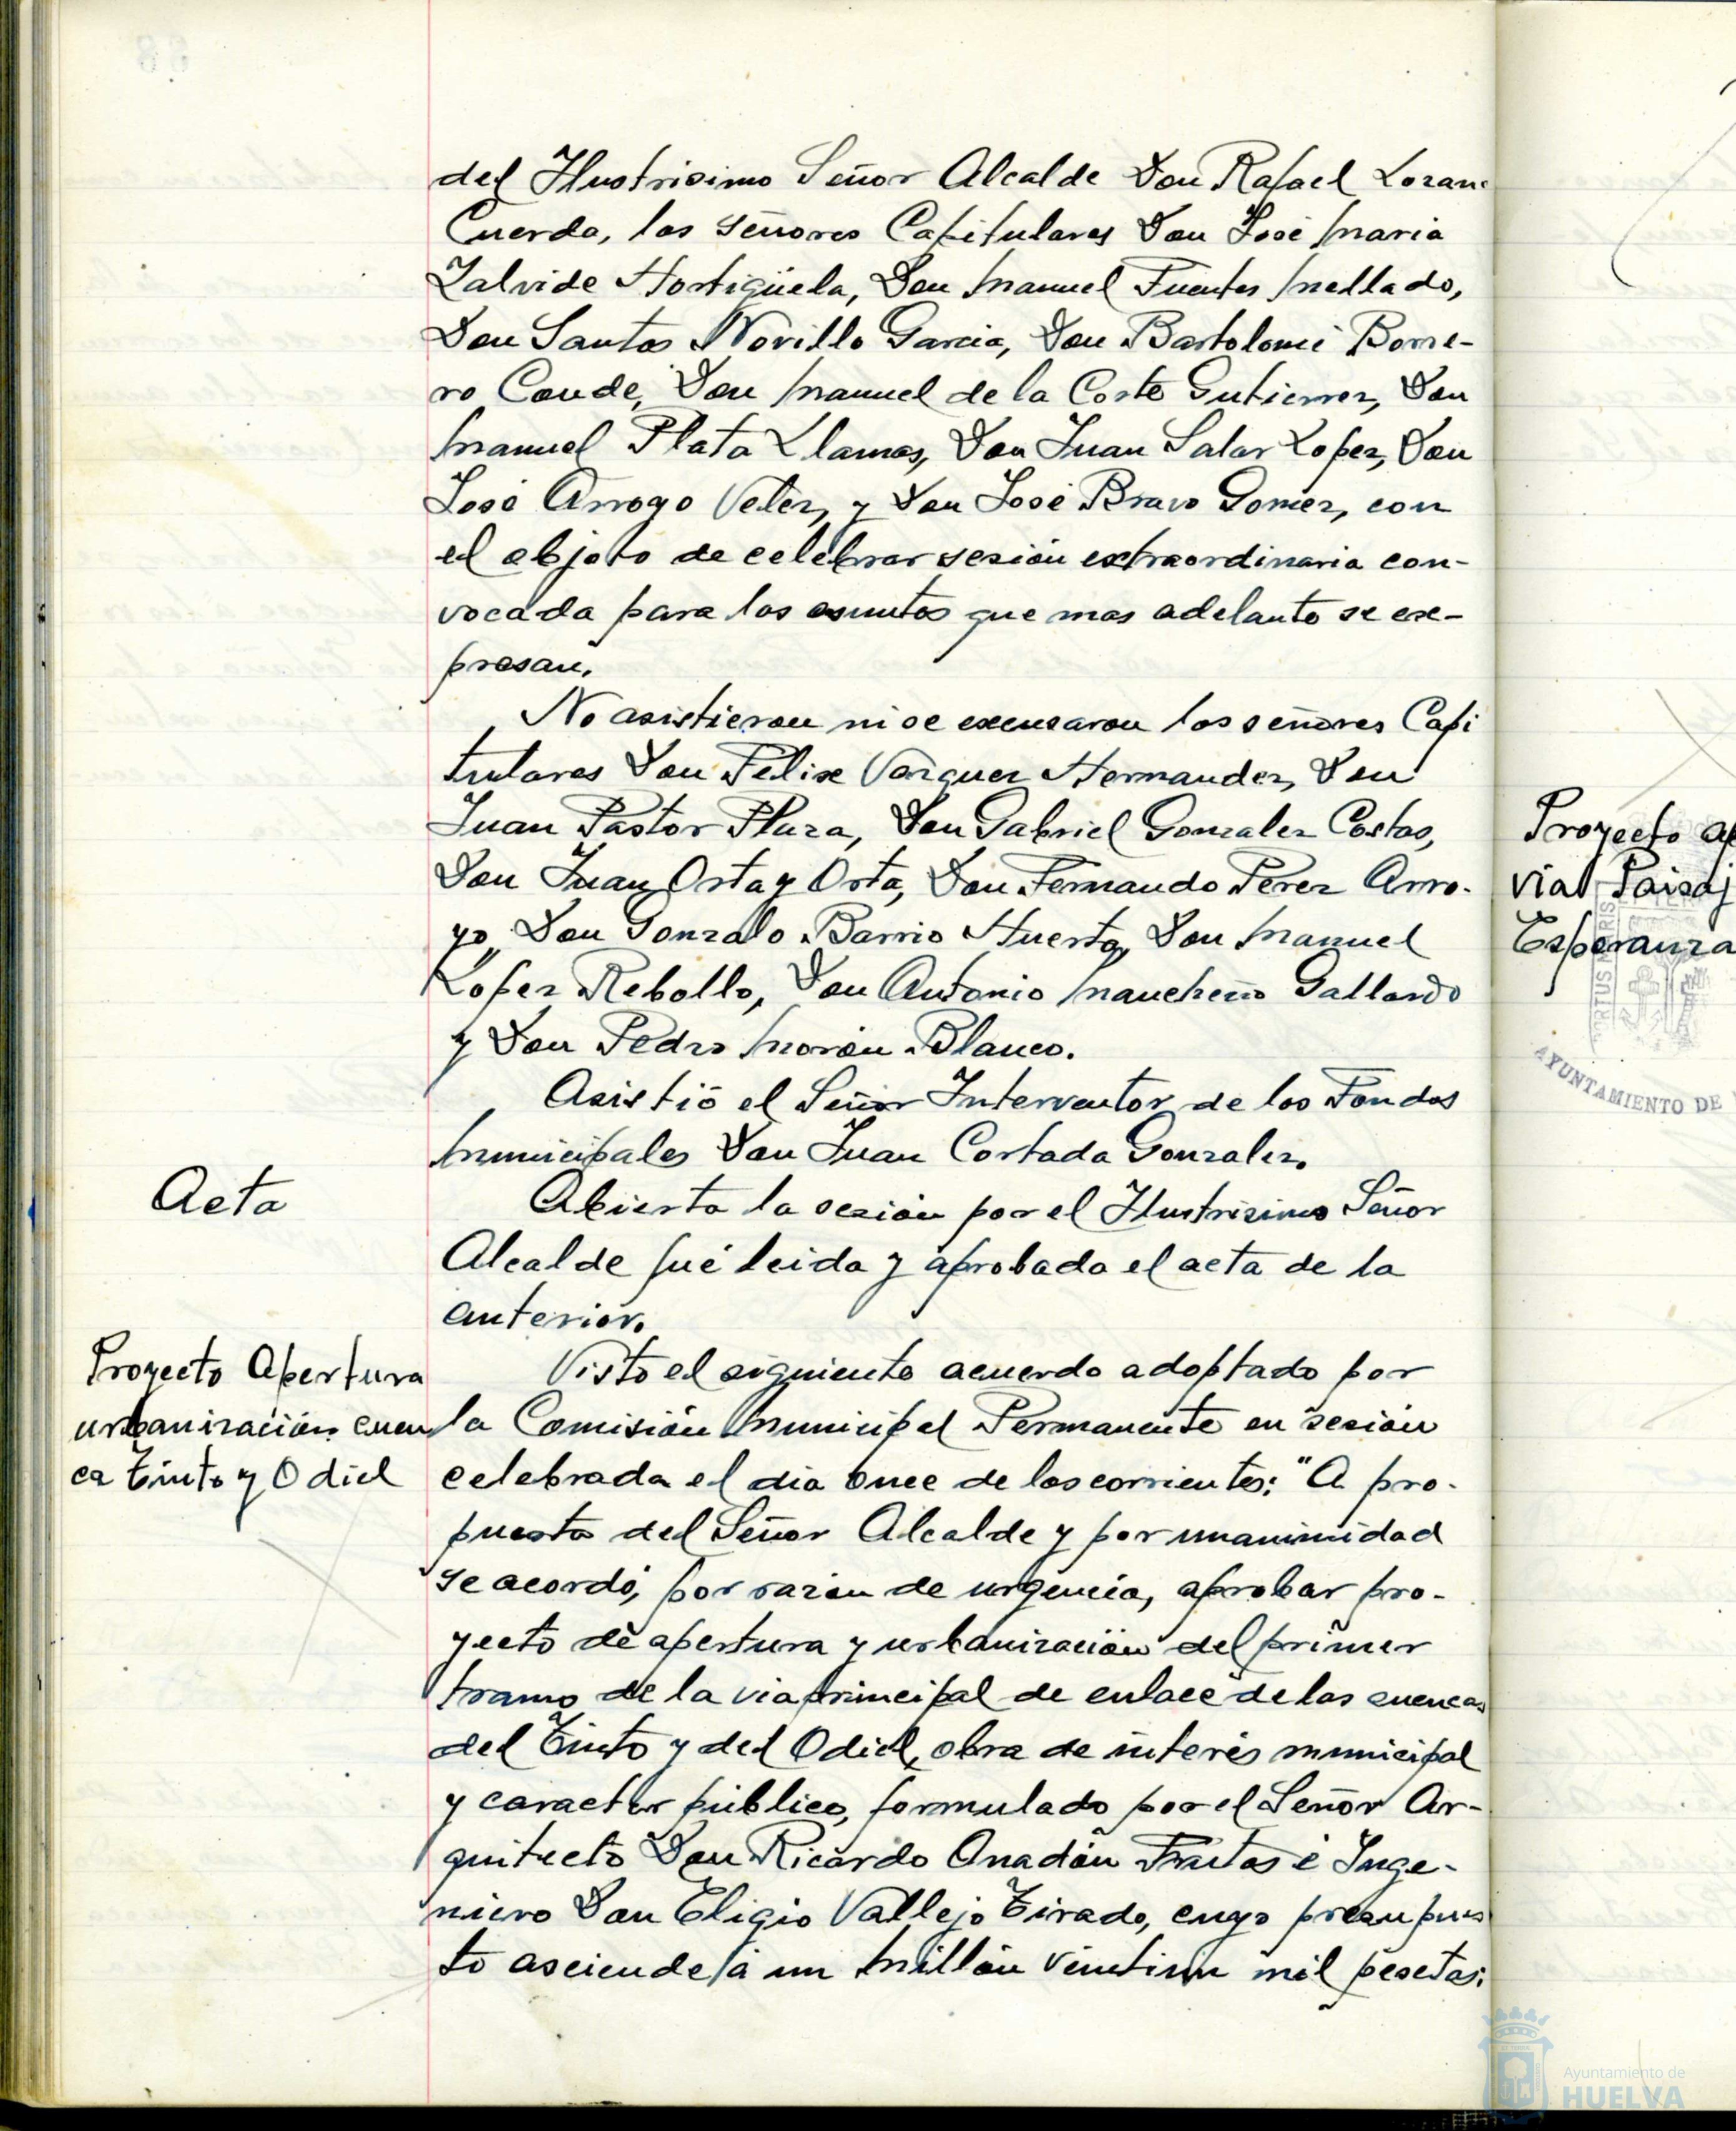 del Ilustrisimo Señor Alcalde Don Rafael Lozano
Cuerda, los señores Capitulares Don José Maria
Zalvide Hortigüela, Don Manuel Fuentes Mellado,
Don Santos Novillo Garcia, Don Bartolomé Borre-
ro Conde, Don Manuel de la Corte Gutierrez, Don
Manuel Plata Llamas, Don Juan Salas Lopez, Don
José Arroyo Velez, y Don José Bravo Gomez, con
el objeto de celebrar sesión extraordinaria con-
vocada para los asuntos que mas adelante se ex-
presan.
No asistieron ni se excusaron los señores Capi
tulares Don Felix Vazquez Hernandez, Don
Juan Pastor Plaza, Don Gabriel Gonzalez Costas,
Don Juan Orta y Orta, Don Fernando Perez Arro-
yo, Don Gonzalo Barrio Huerta, Don Manuel
Lopez Rebollo, Don Antonio Mancheño Gallardo
y Don Pedro Morón Blanco.
Asistió el Señor Interventor de los Fondos
Municipales Don Juan Cortada Gonzalez.
Acta
Abierta la sesión por el Ilustrisimo Señor
Alcalde fué leida y aprobada el acta de la
anterior.
Proyecto Apertura
urbanización cuen
ca Tinto y Odiel
Visto el siguiente acuerdo adoptado por
la Comisión Municipal Permanente en sesión
celebrada el dia once de los corrientes: "A pro-
puesta del Señor Alcalde y por unanimidad
se acordó, por razón de urgencia, aprobar pro-
yecto de apertura y urbanización del primer
tramo de la via principal de enlace de las cuencas
del Tinto y del Odiel, obra de interés municipal
y caracter público, formulado por el Señor Ar-
quitecto Don Ricardo Anadón Frutos é Inge-
niero Don Eligio Vallejo Tirado, cuyo presupues
to asciende á un millón veintiun mil pesetas;
Proyecto ap
vial Paisaj
Esperanza
AYUNTAMIENTO DE
Ayuntamiento de
HUELVA